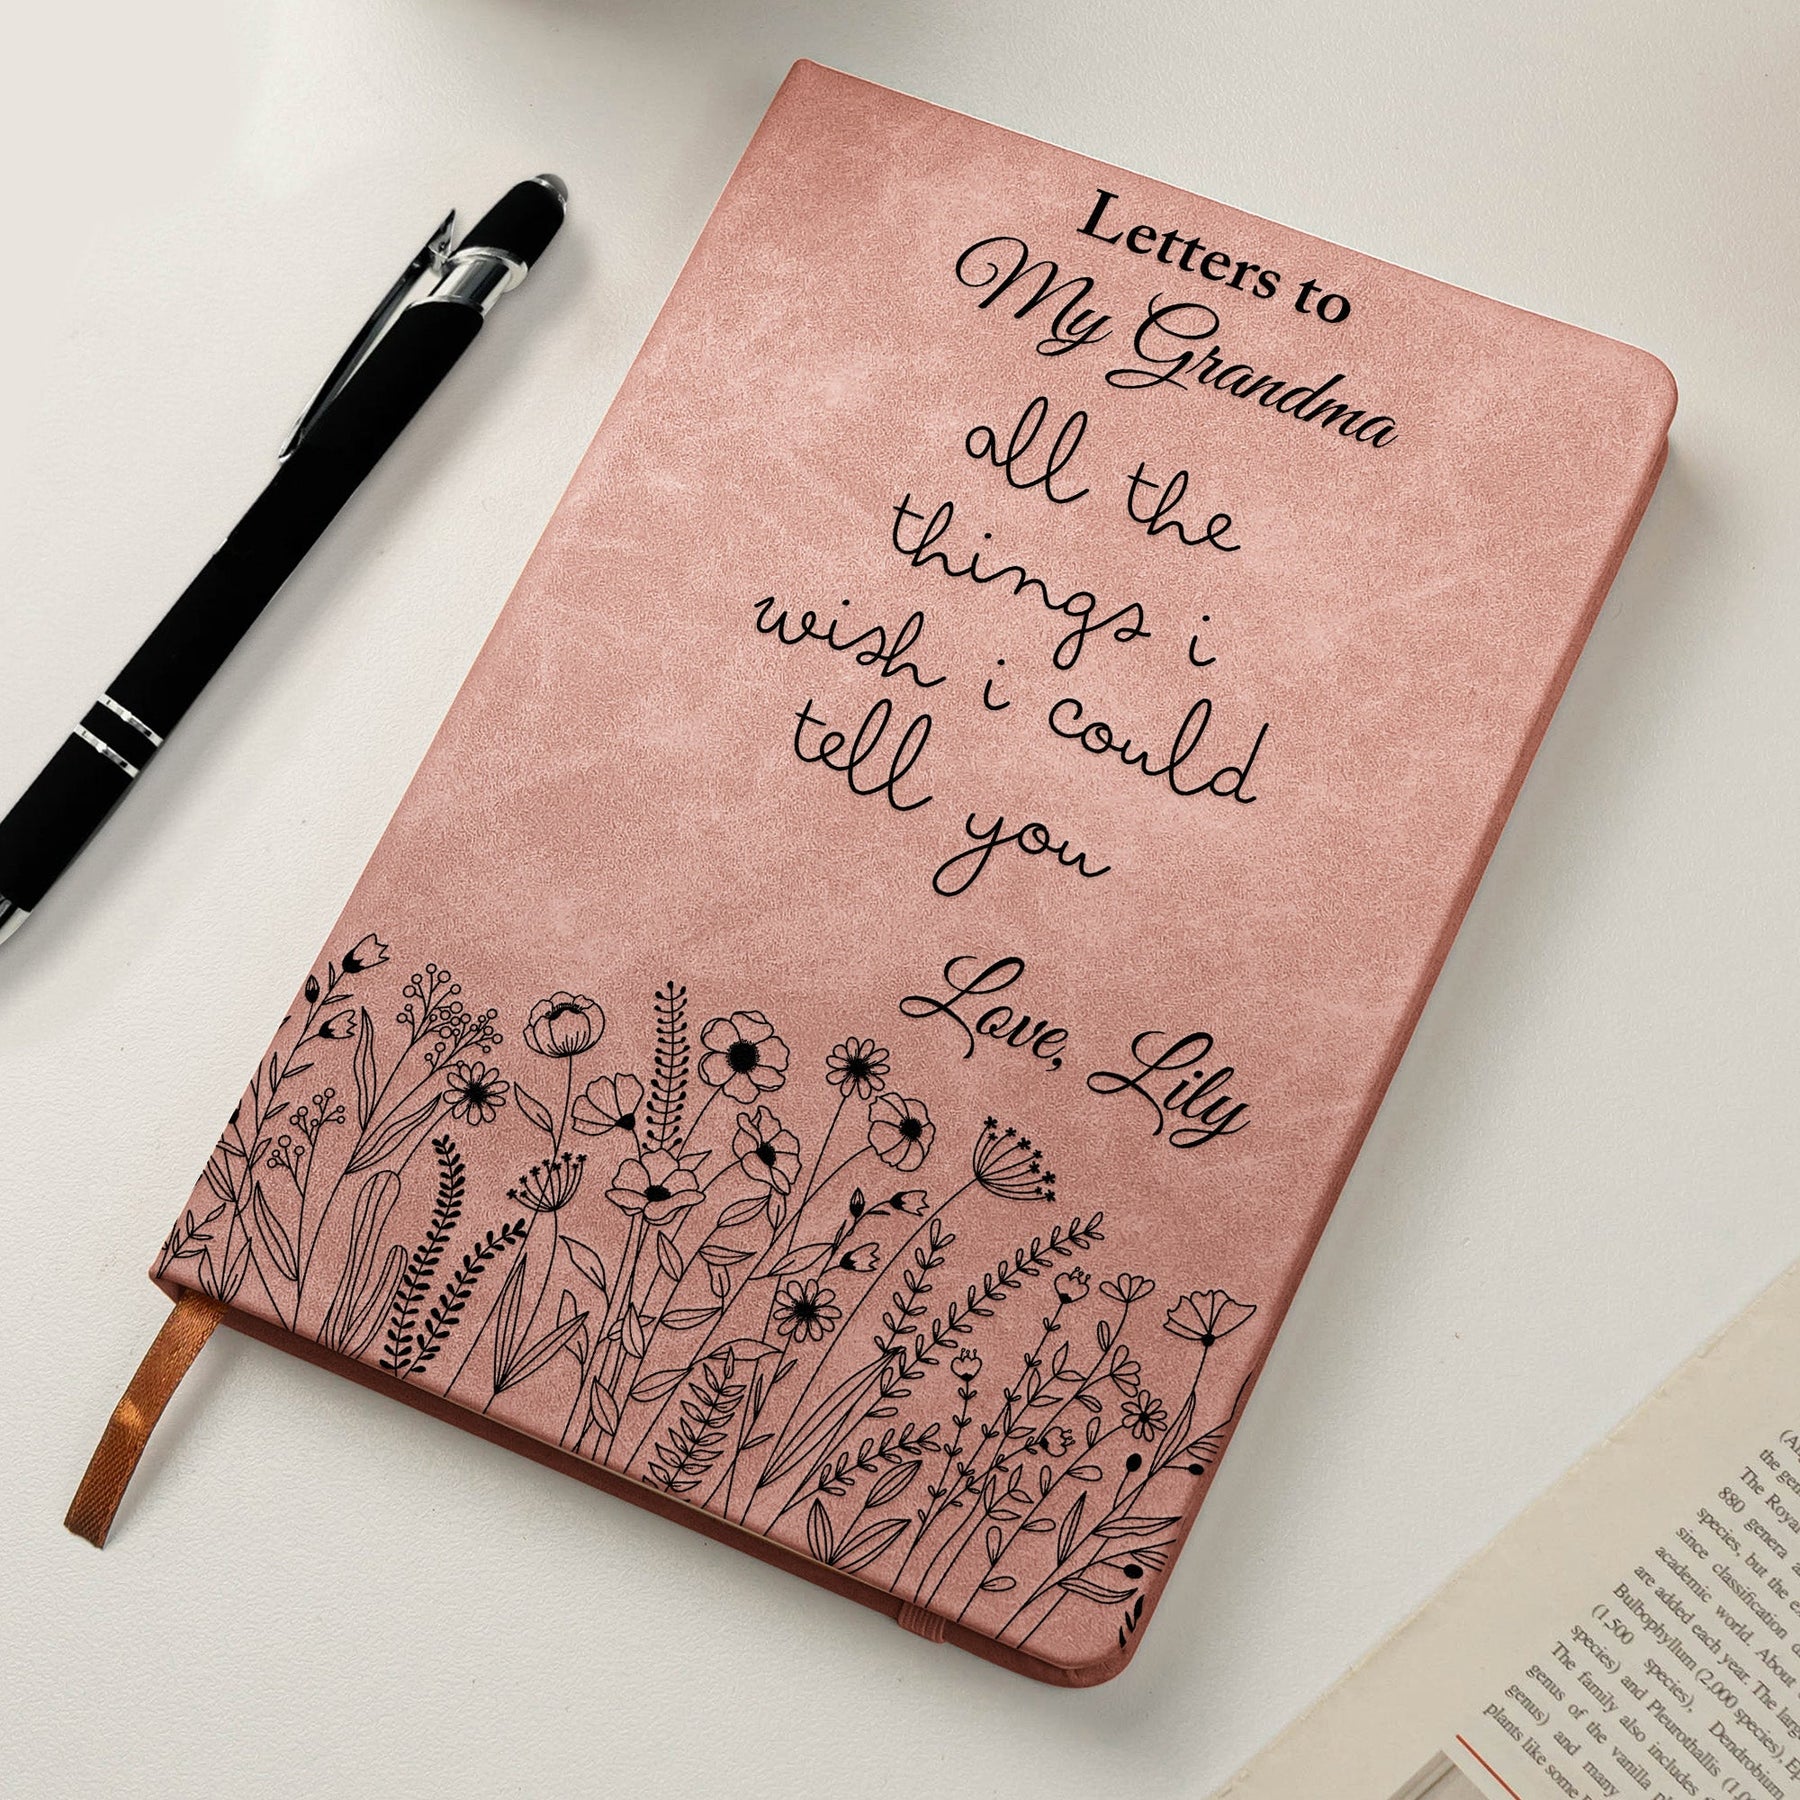 Letters to
My Grandma
all the
things i
wish i could
tell you
Love, Lily
the gen
The Royal
880 genera a
species, but the e
since classification
academic world. About
are added each year. The larg
Bulbophyllum (2,000 species), Ep
(1,500 species), Dendrobium
species) and Pleurothallis (1,0
The family also includes
genus of the vanilla
genus) and many
plants like some